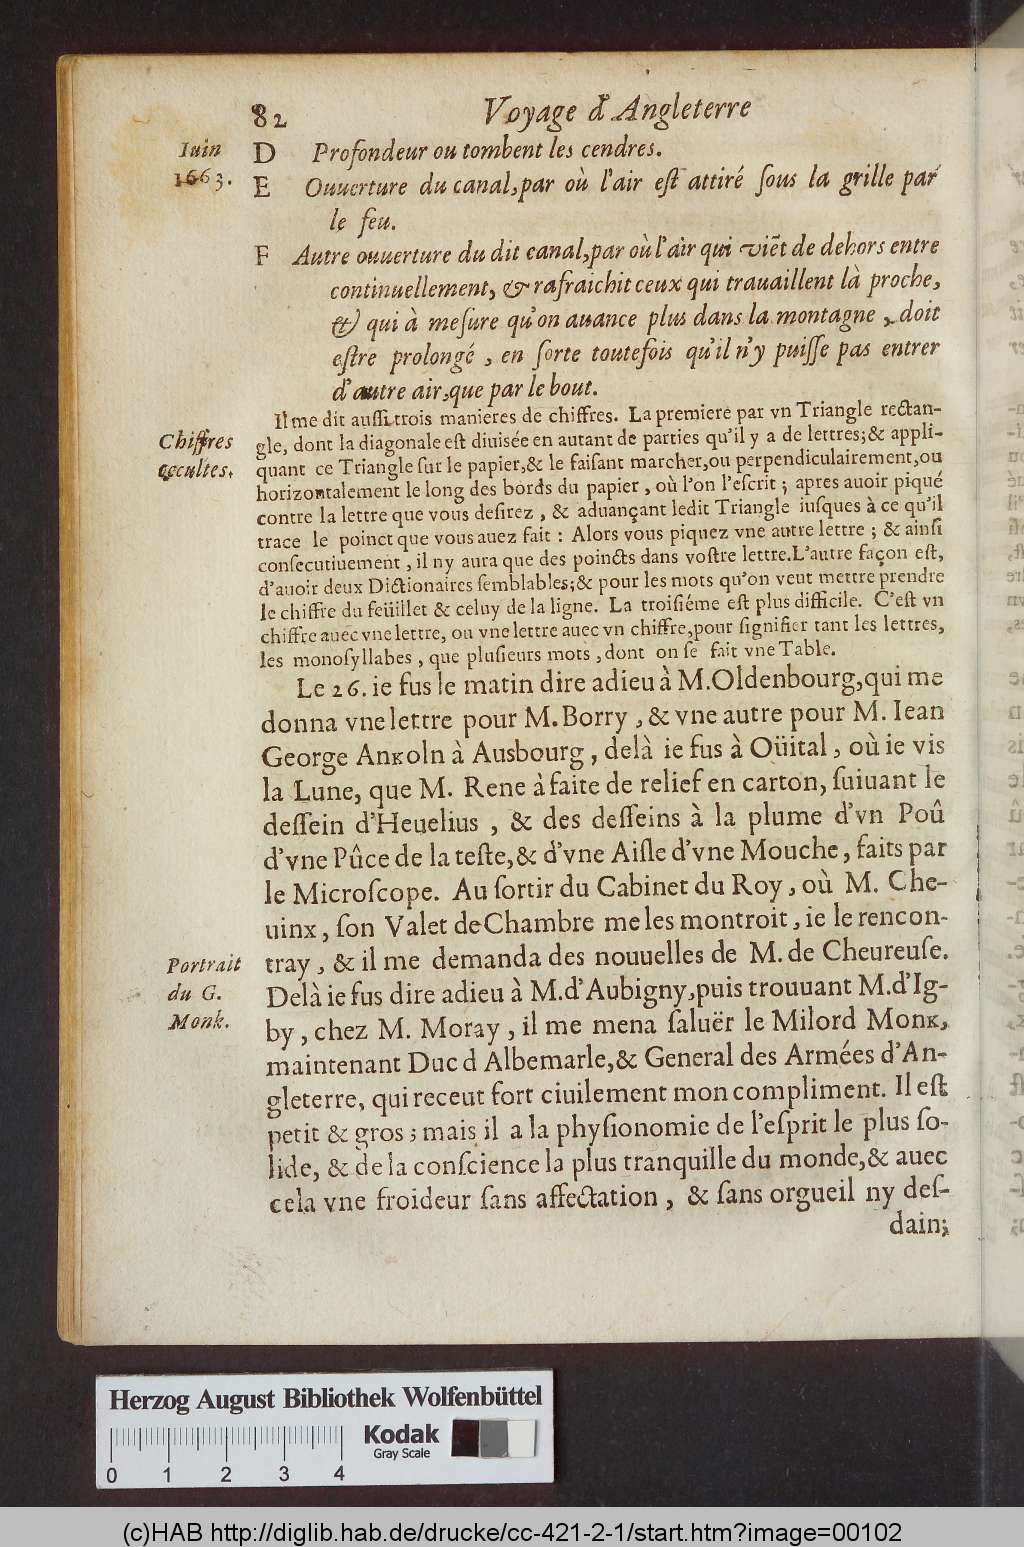 82 Voyage d'Angleterre
Iuin
1663.
D Profondeur ou tombent les cendres.
E Ouuerture du canal, par où l'air eſt attiré ſous la grille par
le feu.
F Autre ouuerture du dit canal, par où l'air qui viẽt de dehors entre
continuellement, & rafraichit ceux qui trauaillent là proche,
& qui à meſure qu'on auance plus dans la montagne, doit
eſtre prolongé, en ſorte toutefois qu'il n'y puiſſe pas entrer
d'autre air, que par le bout.
Chiffres
occultes.
Il me dit auſſi trois manieres de chiffres. La premiere par vn Triangle rectan-
gle, dont la diagonale eſt diuisée en autant de parties qu'il y a de lettres; & appli-
quant ce Triangle ſur le papier, & le faiſant marcher, ou perpendiculairement, ou
horizontalement le long des bords du papier, où l'on l'eſcrit; apres auoir piqué
contre la lettre que vous deſirez, & aduançant ledit Triangle iuſques à ce qu'il
trace le poinct que vous auez fait: Alors vous piquez vne autre lettre; & ainſi
conſecutiuement, il ny aura que des poincts dans voſtre lettre. L'autre façon eſt,
d'auoir deux Dictionaires ſemblables; & pour les mots qu'on veut mettre prendre
le chiffre du feüillet & celuy de la ligne. La troiſiéme eſt plus difficile. C'eſt vn
chiffre auec vne lettre, ou vne lettre auec vn chiffre, pour ſignifier tant les lettres,
les monoſyllabes, que pluſieurs mots, dont on ſe fait vne Table.
Le 26. ie fus le matin dire adieu à M. Oldenbourg, qui me
donna vne lettre pour M. Borry, & vne autre pour M. Iean
George Ankoln à Ausbourg, delà ie fus à Oüital, où ie vis
la Lune, que M. Rene à faite de relief en carton, ſuiuant le
deſſein d'Heuelius, & des deſſeins à la plume d'vn Poû
d'vne Pûce de la teſte, & d'vne Aiſle d'vne Mouche, faits par
le Microſcope. Au ſortir du Cabinet du Roy, où M. Che-
uinx, ſon Valet de Chambre me les montroit, ie le rencon-
tray, & il me demanda des nouuelles de M. de Cheureuſe.
Delà ie fus dire adieu à M. d'Aubigny, puis trouuant M. d'Ig-
by, chez M. Moray, il me mena ſaluër le Milord Monk,
maintenant Duc d Albemarle, & General des Armées d'An-
gleterre, qui receut fort ciuilement mon compliment. Il eſt
petit & gros; mais il a la phyſionomie de l'eſprit le plus ſo-
lide, & de la conſcience la plus tranquille du monde, & auec
cela vne froideur ſans affectation, & ſans orgueil ny deſ-
dain;
Portrait
du G.
Monk.
Herzog August Bibliothek Wolfenbüttel
Kodak
Gray Scale
0 1 2 3 4
(c)HAB http://diglib.hab.de/drucke/cc-421-2-1/start.htm?image=00102